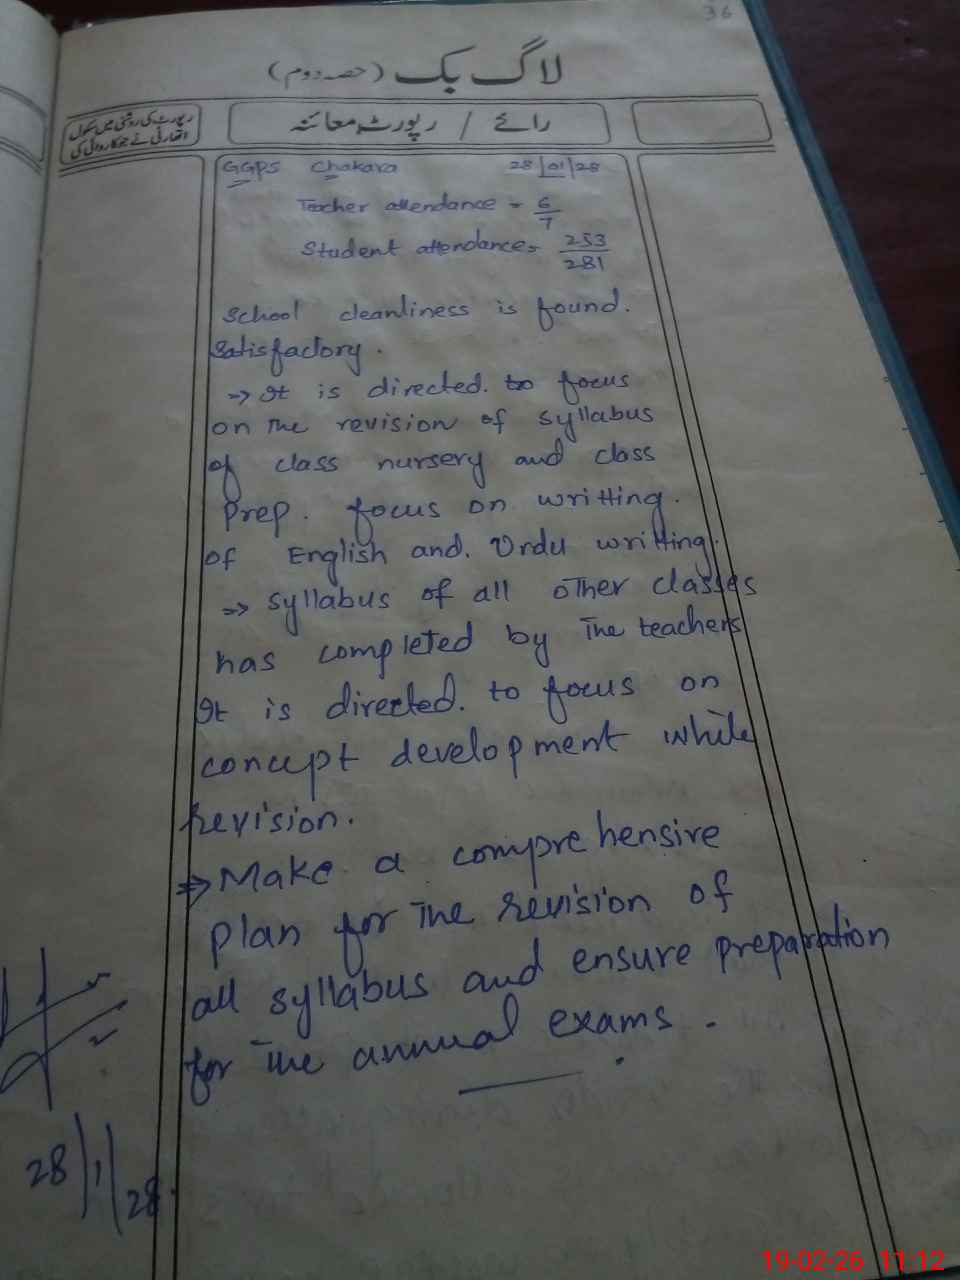 36
لاگ بک (حصہ دوم)
رپورٹ کی روشنی میں سکول
اتھارٹی نے جو کاروائی کی
رائے / رپورٹ معائنہ
GGPS Chakara 28/01/28
Teacher attendance = 6/7
Student attendance = 253/281
School cleanliness is found.
Satisfactory.
=> It is directed. to focus
on the revision of syllabus
of class nursery and class
Prep. focus on writting.
of English and. Urdu writting.
=> syllabus of all other classes
has completed by The teachers
It is directed. to focus on
concept development while
revision.
=> Make a comprehensive
plan for The revision of
all syllabus and ensure preparation
for The annual exams.
28/1/28
19-02-26 11:12